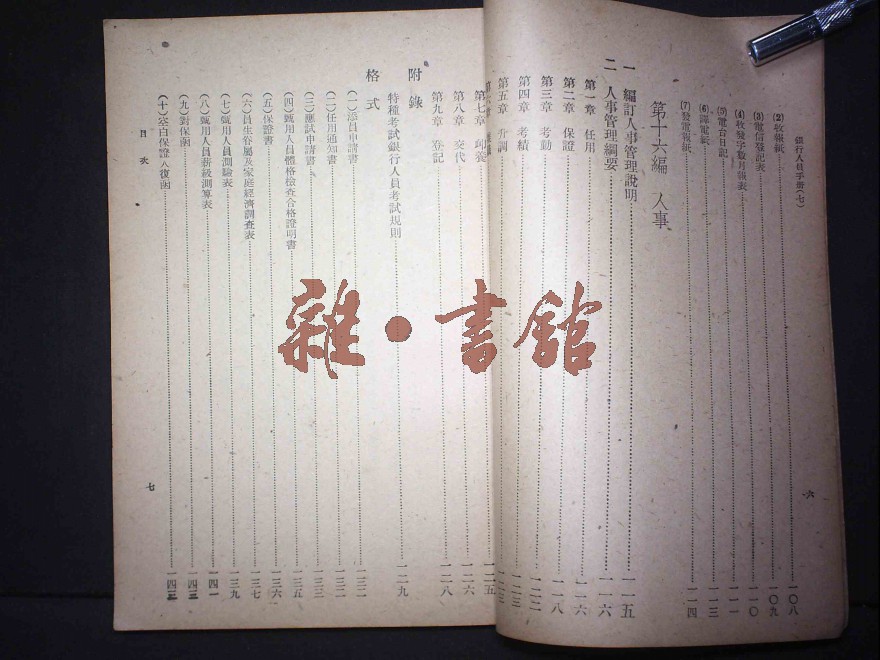 銀行人員手冊(七)
(2) 收報紙 一〇八
(3) 電信登記表 一〇九
(4) 收發字數月報表 一一〇
(5) 電台日記 一一一
(6) 譯電紙 一一三
(7) 發電報紙 一一四
第十六編 人事
一 編訂人事管理說明 一一五
二 人事管理綱要 一一六
第一章 任用 一一六
第二章 保證 一一八
第三章 考勤 一二二
第四章 考績 一二三
第五章 升調
六
第七章 卹養 一二五
第八章 交代 一二六
第九章 登記 一二八
附錄
特種考試銀行人員考試規則 一二九
格式
(一)添員申請書 一三二
(二)任用通知書 一三二
(三)應試申請書 一三三
(四)甄用人員體格檢查合格證明書 一三五
(五)保證書 一三六
(六)員生眷屬及家庭經濟調查表 一三七
(七)甄用人員測驗表 一三九
(八)甄用人員薪級測算表 一四一
(九)對保函 一四三
(十)空白保證人復函 一四三
目次
七
雜·書館